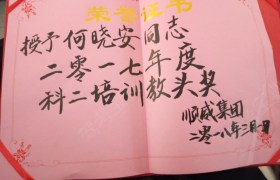 荣誉证书
授予何晓安同志
二零一七年度
科二培训教头奖
顺威集团
二零一八年三月一日